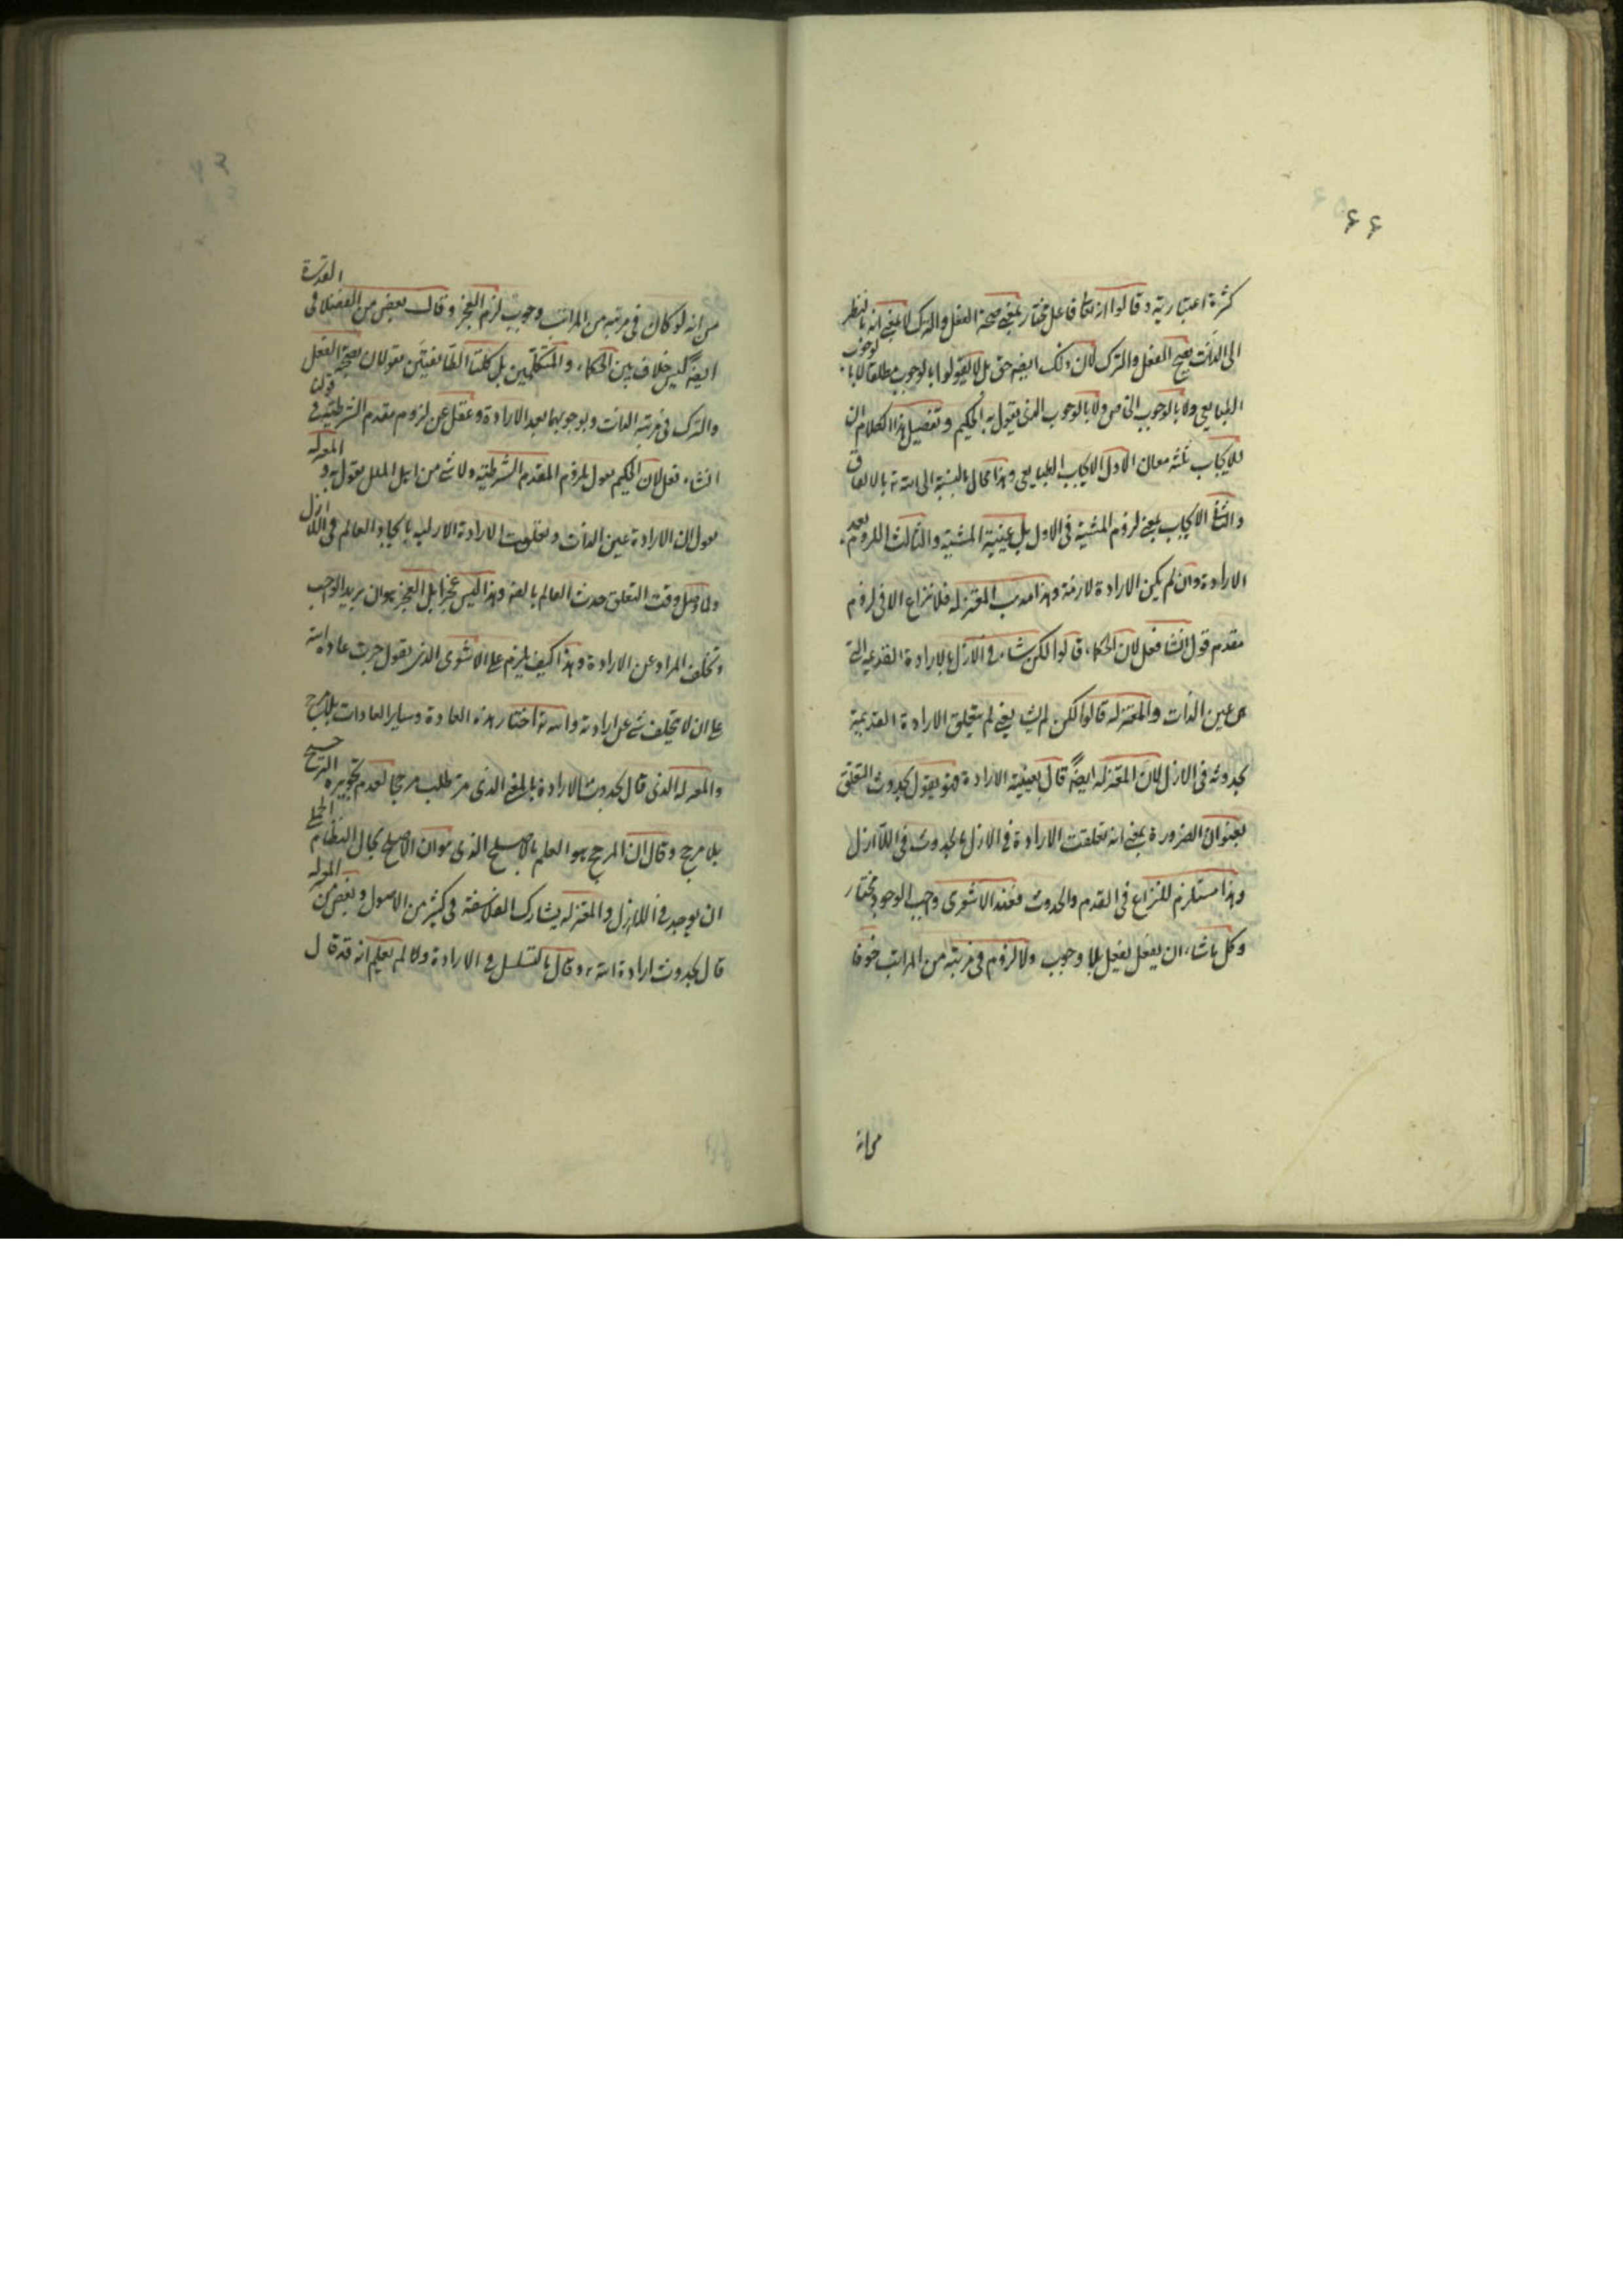 ٦٦
كثرة اعتبارية وقالوا انه تعالى فاعل مختار بمعنى صحة الفعل والترك لا بمعنى انه بالنظر
الى الذات يصح الفعل والترك لان ذلك ايضا حق بل لا يقولوا بالوجوب مطلقا لا بالوجوب
الطباعي ولا بالوجوب الخاص ولا بالوجوب الذى يقول به الحكيم وتفصيل هذا الكلام ان
للايجاب ثلثة معان الاول الايجاب الطباعي وهذا محال بالنسبة الى الله تع بالاتفاق
والثانى الايجاب بمعنى لزوم المشية فى الاول بل عينية المشية والثالث اللزوم بعد
الارادة وان لم يكن الارادة لازمة وهذا مذهب المعتزله فلا نزاع الا فى لزوم
مقدم قول ان شاء فعل لان الحكماء قالوا لكن شاء فى الازل بالارادة القديمة التى
هى عين الذات والمعتزله قالوا لكن لم يشا يعنى لم يتعلق الارادة القديمة
بحدوثه فى الازل لان المعتزله ايضا قال بعينية الارادة فهو يقول بحدوث التعلق
بعنوان الضرورة بمعنى انه تعلقت الارادة فى الازل بالحدوث فى اللاازل
وهذا مستلزم للنزاع فى القدم والحدوث فعند الاشعرى واجب الوجود مختار
وكل ما شاء ان يفعل يفعل بلا وجوب ولا لزوم فى مرتبة من المراتب خوفا
من انه لو كان فى مرتبة من المراتب وجوب لزم العجز وقال بعض من الفضلا فى القدرة
ايضا ليس خلاف بين الحكماء والمتكلمين بل كلتا الطائفتين يقولان بصحة الفعل
والترك فى مرتبة الذات وبوجوبهما بعد الارادة وغفل عن لزوم مقدم الشرطية فى قولنا
ان شاء فعل لان الحكيم يقول بلزوم المقدم الشرطية ولا شئ من اهل الملل يقول به والمعتزله
يقول ان الارادة عين الذات وتعلقت الارادة الازلية بايجاد العالم فى اللاازل
ولما وصل وقت التعلق حدث العالم بالله وهذا ليس عجزا بل العجز هو ان يريد الواجب
وتخلف المراد عن الارادة وهذا كيف يلزم على الاشعرى الذى يقول جرت عادة الله
على ان لا يتخلف شئ عن ارادته والله تع اختار هذه العادة وساير العادات بلا مرجح
والمعتزله الذى قال بحدوث الارادة بالمعنى الذى مر طلب مرجحا لعدم تجويزه الترجيح
بلا مرجح وقال ان المرجح هو العلم بالاصلح الذى هو ان الاصلح بحال النظام الجملى
ان يوجد فى اللاازل والمعتزله يشارك الفلاسفة فى كثير من الاصول وبعض من المعتزله
قال بحدوث ارادة الله تع وقال بالتسلسل فى الارادة ولما لم يعلم انه قد قال